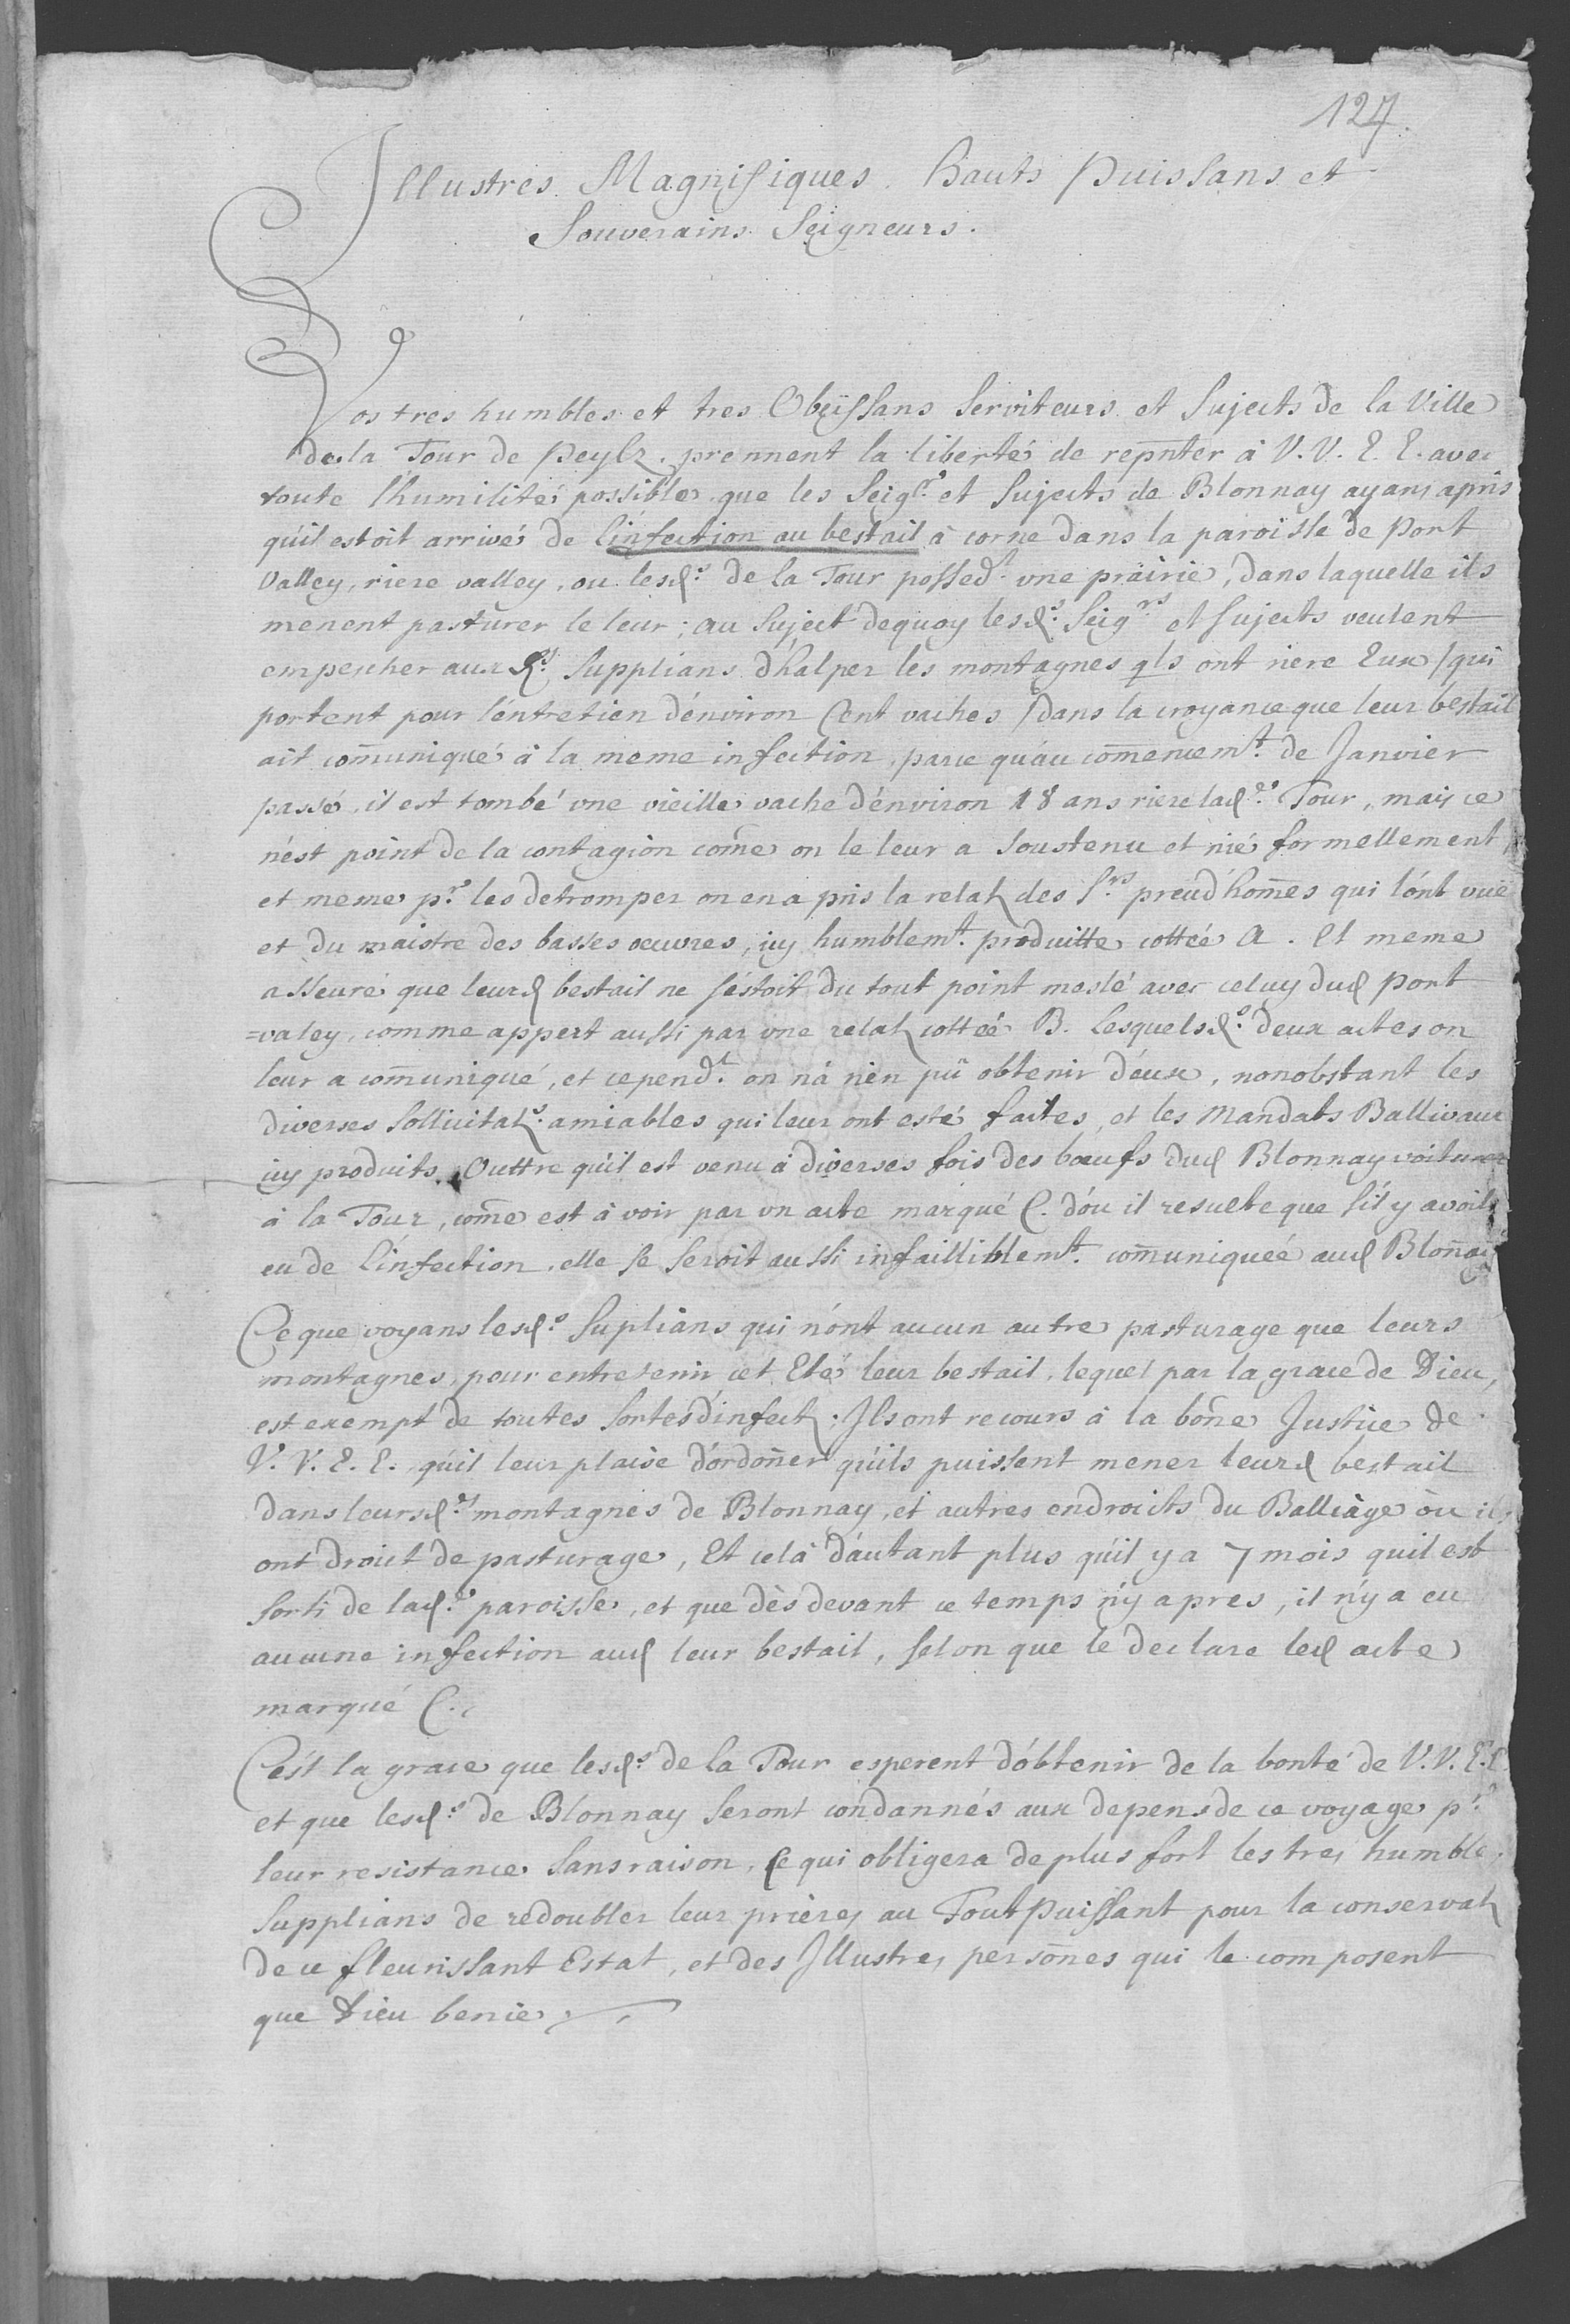 127.
Illustres Magnifiques Hauts Puissans et
Souverains Seigneurs.
Vos tres humbles et tres Obeïssans Serviteurs et Sujects de la Ville
de la Tour de Peylz, prennent la liberté de repnter à V. V. E. E. avec
toute l'humilité possible, que les Seigrs et Sujects de Blonnay ayans apris
qu'il estoit arrivé de l'infection au bestail à corne dans la paroisse de Port
Valley, riere valley, ou lesds. de la Tour possedt. une prairie, dans laquelle ils
menent pasturer le leur; au Suject dequoy lesds. Seigrs et Sujects veulent
empescher aux ds. Supplians d'halper les montagnes qls ont riere Eux /qui
portent pour l'entretien d'environ Cent vaches/ dans la croyance que leur bestail
ait comuniqué à la meme infection, parce qu'au comencemt. de Janvier
passé, il est tombé une vieille vache d'environ 18 ans riere lade. Tour, mais ce
n'est point de la contagion come on le leur a soustenu et nié formellement
et meme pr. les detromper on en a pris la relat des Srs preud'homes qui l'ont vuë
et du maistre des basses oeuvres, icy humblemt. produitte cottée A. Et meme
asseuré que leurd bestail ne s'estoit du tout point meslé avec celuy dud Port
=valey, comme appert aussi par une relat cottée B. Lesquelsds. deux actes on
leur a comuniqué, et cependt. on n'a rien pû obtenir d'eux, nonobstant les
diverses sollicitats. amiables qui leur ont esté faites, et les Mandats Ballivaux
icy produits. Outtre qu'il est venu à diverses fois des boeufs dud Blonnay voiturer
à la Tour, come est à voir par un acte marqué C. d'où il resulte que s'il y avoit
eu de l'infection, elle se seroit aussi infailliblemt. comuniquée aud Blonay
Ce que voyans lesds. Suplians qui n'ont aucun autre pasturage que leurs
montagnes, pour entretenir cet Eté leur bestail, lequel par la grace de Dieu,
est exempt de toutes sortes d'infect; Ils ont recours à la bone Justice de
V. V. E. E. qu'il leur plaise d'ordoner qu'ils puissent mener leurd bestail
dans leursdes. montagnes de Blonnay, et autres endroicts du Balliage où ils
ont droict de pasturage, Et cela d'autant plus qu'il y a 7 mois quil est
sorti de lade. paroisse, et que dès devant ce temps n'y apres, il n'y a eu
aucune infection aud leur bestail, selon que le declare led acte
marqué C.
C'est la grace que lesds. de la Tour esperent d'obtenir de la bonté de V. V. E. E.
et que lesds. de Blonnay seront condannés aux depens de ce voyage pr.
leur resistance sans raison, Ce qui obligera de plus fort les tres humbles
Supplians de redoubler leur prieres au Tout Puissant pour la conservat
de ce fleurissant Estat, et des Illustres persones qui le composent
que Dieu benie.